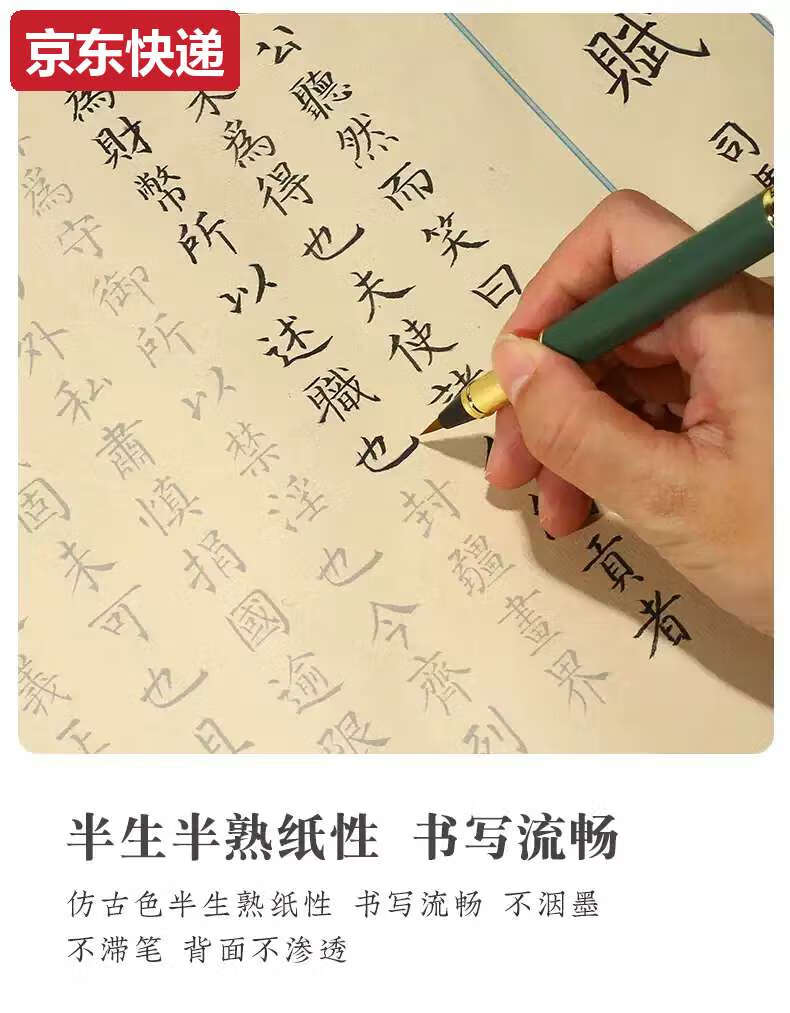 京东快递
賦
司
公聽然而笑曰
未為得也夫使諸
貢者
為財幣所以述職也封疆畫界
為守御所以禁淫也今齊列
外私肅慎捐國逾限
固未可也且
義正
半生半熟纸性 书写流畅
仿古色半生熟纸性 书写流畅 不洇墨
不滞笔 背面不渗透